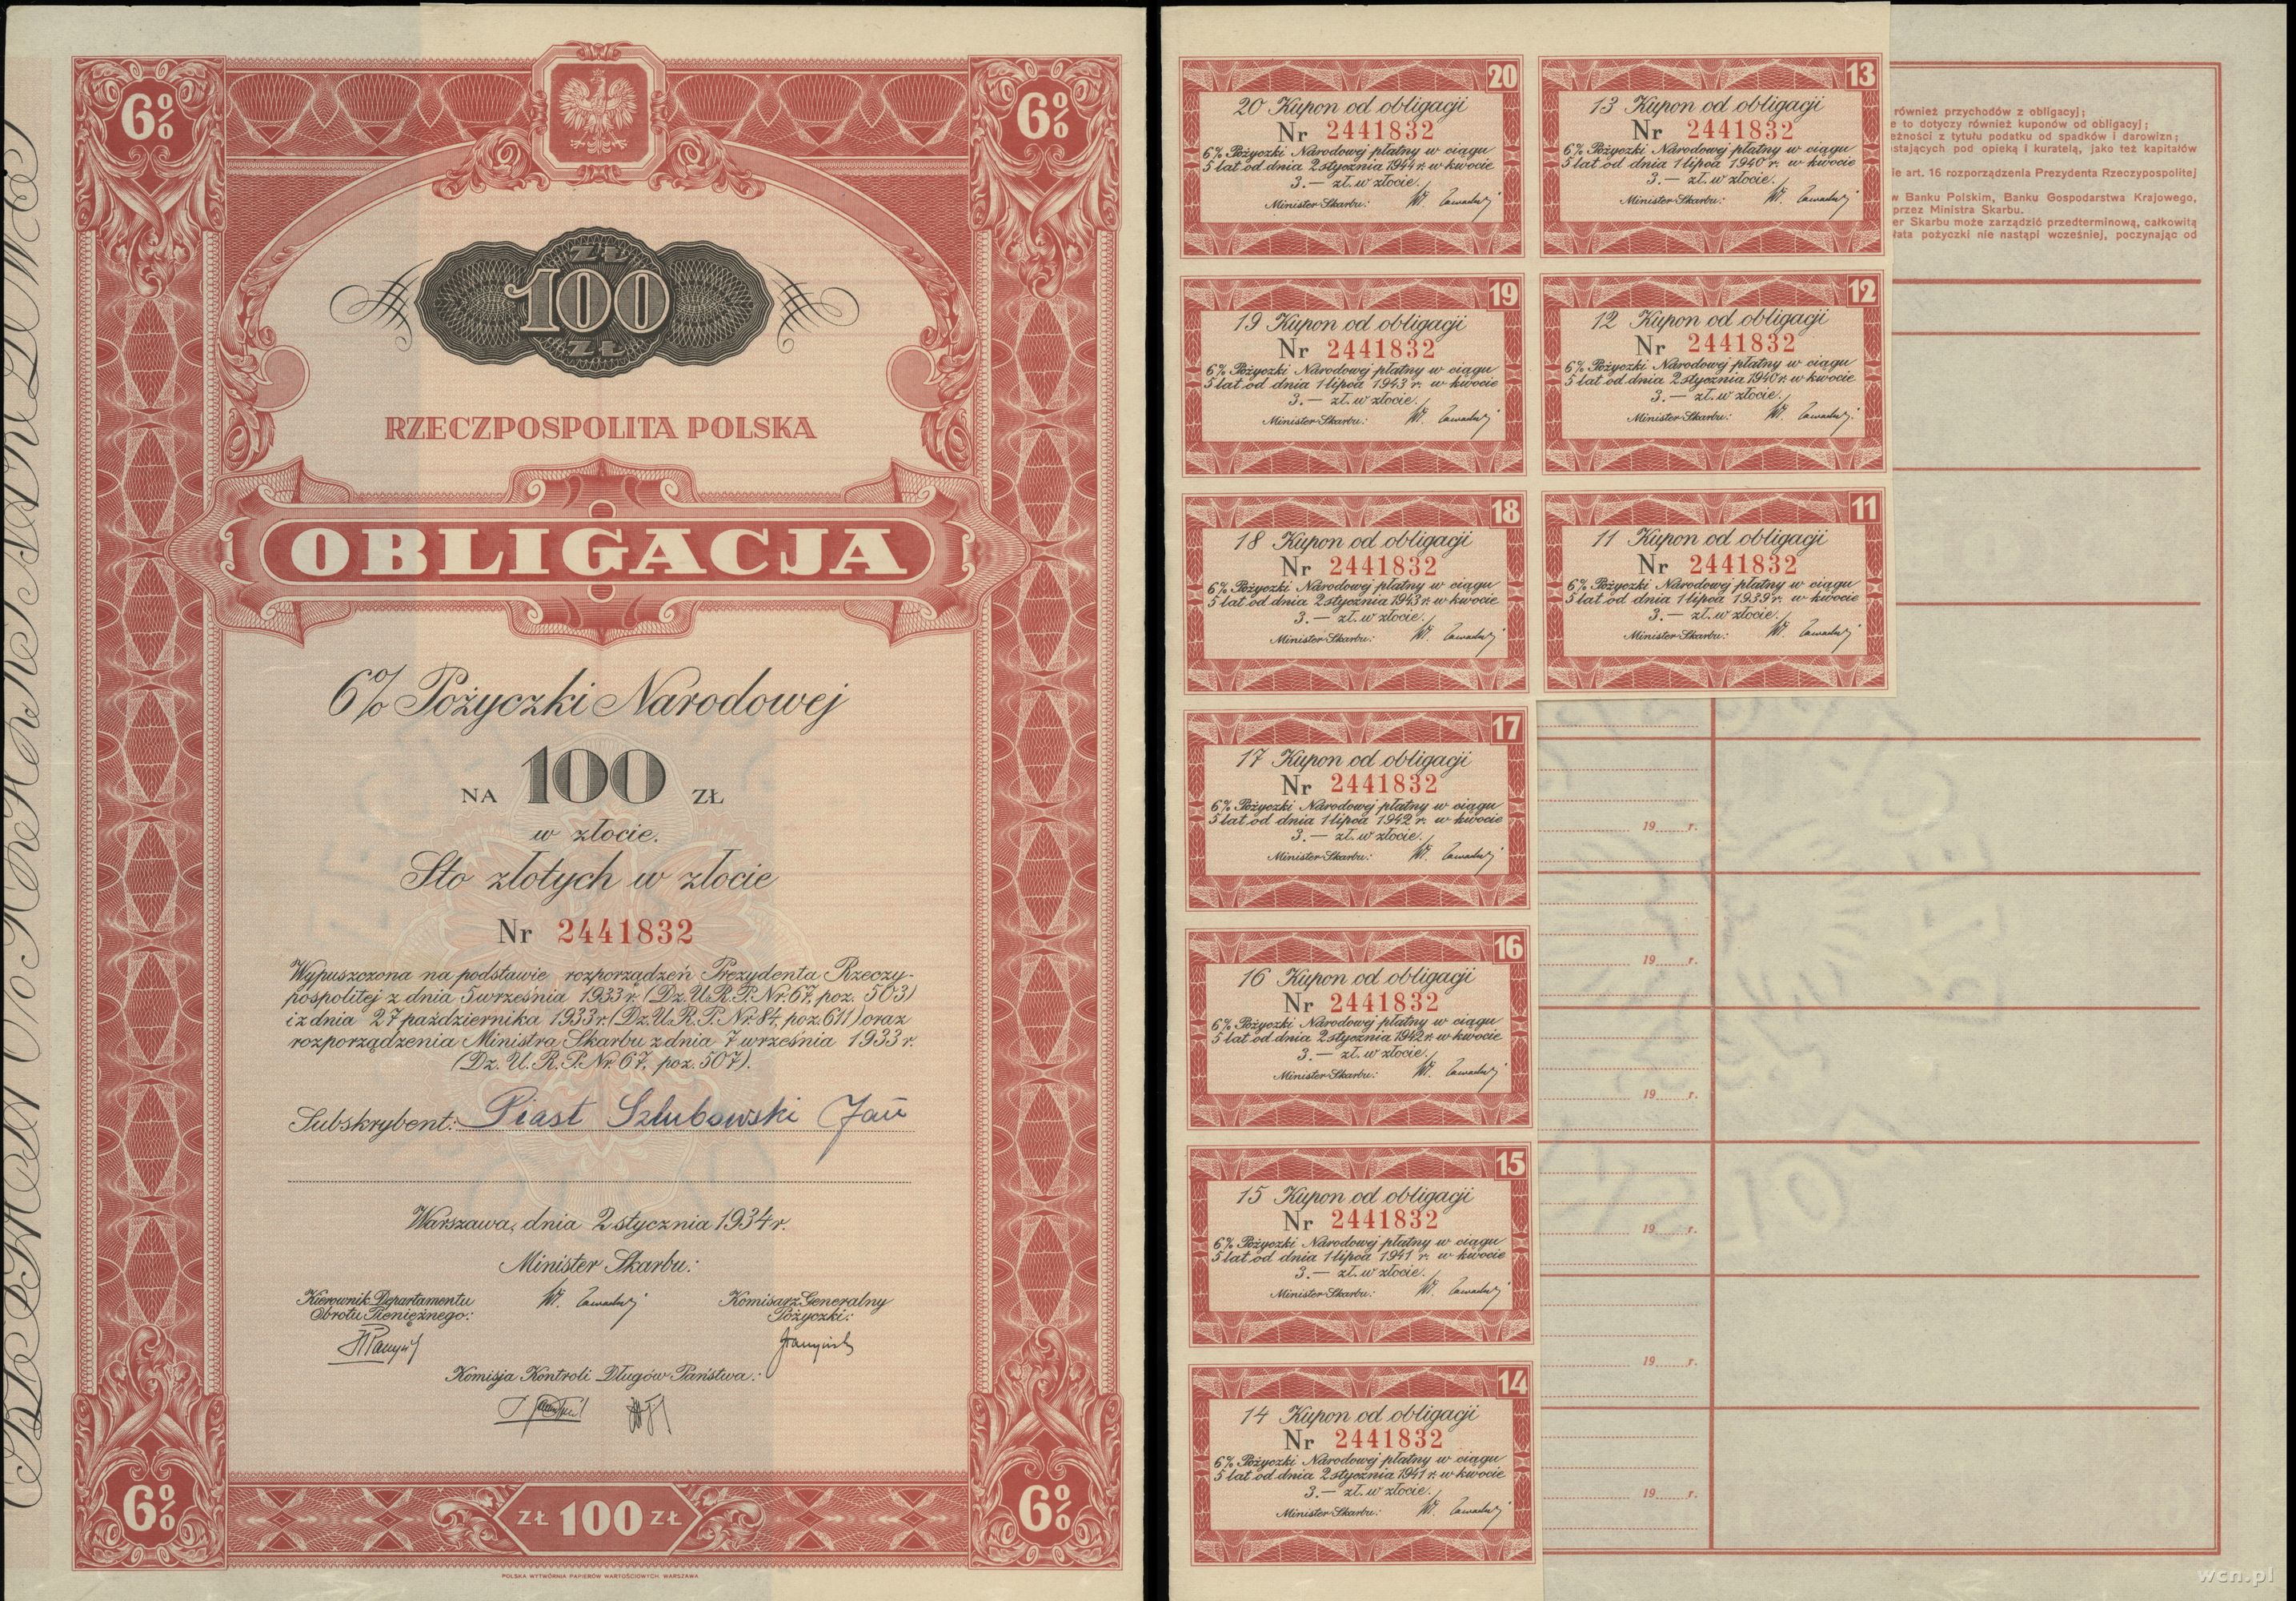 6%
6%
ZŁ
100
ZŁ
RZECZPOSPOLITA POLSKA
OBLIGACJA
6% Pożyczki Narodowej
NA 100 ZŁ
w złocie.
Sto złotych w złocie
Nr 2441832
Wypuszczona na podstawie rozporządzeń Prezydenta Rzeczy-
pospolitej z dnia 5 września 1933 r. (Dz. U. R. P. Nr. 67, poz. 503)
i z dnia 27 października 1933 r. (Dz. U. R. P. Nr. 84, poz. 611) oraz
rozporządzenia Ministra Skarbu z dnia 7 września 1933 r.
(Dz. U. R. P. Nr. 67, poz. 507).
Subskrybent: Piast Szlubowski Jan
Warszawa, dnia 2 stycznia 1934 r.
Minister Skarbu:
Kierownik Departamentu
Obrotu Pieniężnego:
Komisarz Generalny
Pożyczki:
Komisja Kontroli Długów Państwa:
6%
ZŁ 100 ZŁ
6%
POLSKA WYTWÓRNIA PAPIERÓW WARTOŚCIOWYCH WARSZAWA
20
20 Kupon od obligacji
Nr 2441832
6% Pożyczki Narodowej płatny w ciągu
5 lat od dnia 2 stycznia 1944 r. w kwocie
3.— zł. w złocie.
Minister Skarbu:
19
19 Kupon od obligacji
Nr 2441832
6% Pożyczki Narodowej płatny w ciągu
5 lat od dnia 1 lipca 1943 r. w kwocie
3.— zł. w złocie.
Minister Skarbu:
18
18 Kupon od obligacji
Nr 2441832
6% Pożyczki Narodowej płatny w ciągu
5 lat od dnia 2 stycznia 1943 r. w kwocie
3.— zł. w złocie.
Minister Skarbu:
17
17 Kupon od obligacji
Nr 2441832
6% Pożyczki Narodowej płatny w ciągu
5 lat od dnia 1 lipca 1942 r. w kwocie
3.— zł. w złocie.
Minister Skarbu:
16
16 Kupon od obligacji
Nr 2441832
6% Pożyczki Narodowej płatny w ciągu
5 lat od dnia 2 stycznia 1942 r. w kwocie
3.— zł. w złocie.
Minister Skarbu:
15
15 Kupon od obligacji
Nr 2441832
6% Pożyczki Narodowej płatny w ciągu
5 lat od dnia 1 lipca 1941 r. w kwocie
3.— zł. w złocie.
Minister Skarbu:
14
14 Kupon od obligacji
Nr 2441832
6% Pożyczki Narodowej płatny w ciągu
5 lat od dnia 2 stycznia 1941 r. w kwocie
3.— zł. w złocie.
Minister Skarbu:
13
13 Kupon od obligacji
Nr 2441832
6% Pożyczki Narodowej płatny w ciągu
5 lat od dnia 1 lipca 1940 r. w kwocie
3.— zł. w złocie.
Minister Skarbu:
12
12 Kupon od obligacji
Nr 2441832
6% Pożyczki Narodowej płatny w ciągu
5 lat od dnia 2 stycznia 1940 r. w kwocie
3.— zł. w złocie.
Minister Skarbu:
11
11 Kupon od obligacji
Nr 2441832
6% Pożyczki Narodowej płatny w ciągu
5 lat od dnia 1 lipca 1939 r. w kwocie
3.— zł. w złocie.
Minister Skarbu:
również przychodów z obligacyj;
e to dotyczy również kuponów od obligacyj;
eżności z tytułu podatku od spadków i darowizn;
stających pod opieką i kuratelą, jako też kapitałów
ie art. 16 rozporządzenia Prezydenta Rzeczypospolitej
w Banku Polskim, Banku Gospodarstwa Krajowego,
przez Ministra Skarbu.
er Skarbu może zarządzić przedterminową, całkowitą
łata pożyczki nie nastąpi wcześniej, poczynając od
19 r.
19 r.
19 r.
19 r.
19 r.
19 r.
wcn.pl